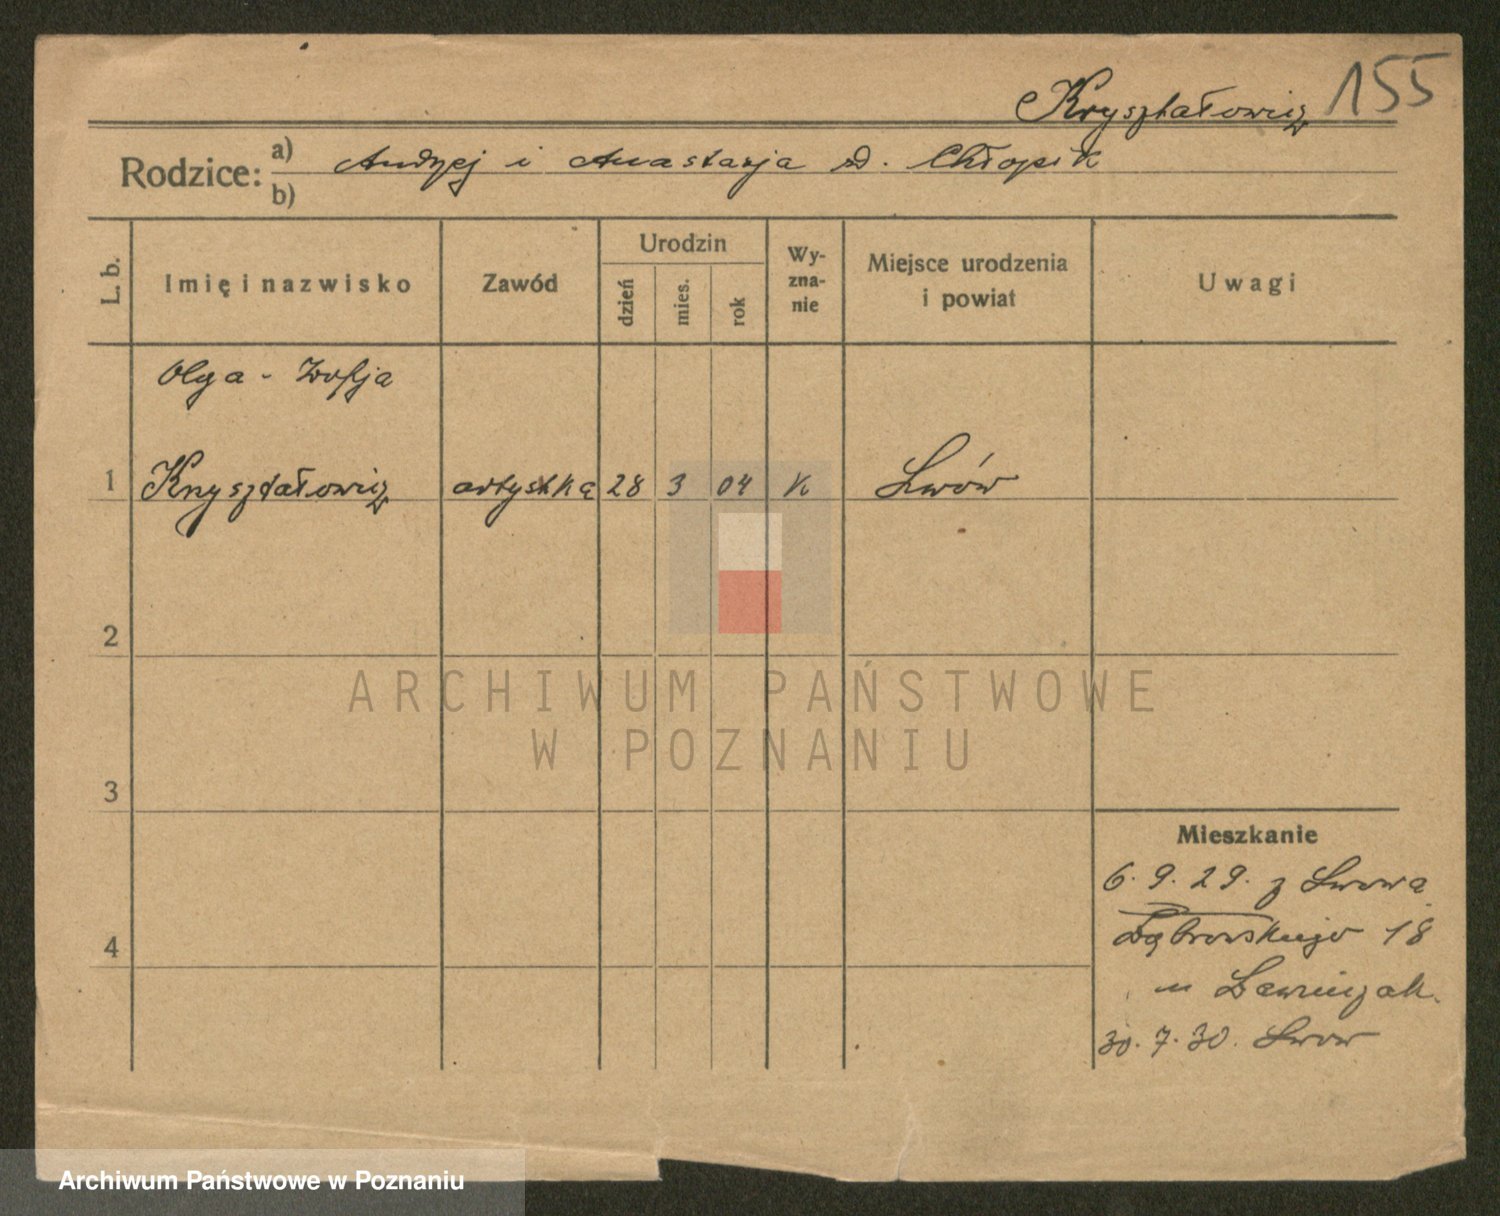 155
Kryształowicz
Rodzice: a) Andrzej i Anastazja d. Chłopik
b)
L. b. Imię i nazwisko Zawód Urodzin dzień mies. rok Wy-zna-nie Miejsce urodzenia i powiat Uwagi
Olga - Zofja
1 Kryształowicz artystka 28 3 04 K Lwów
2
3
4
Mieszkanie
6.9.29. z Lwowa
Dąbrowskiego 18
u Ławniczak.
30.7.30. Lwow
ARCHIWUM PAŃSTWOWE
W POZNANIU
Archiwum Państwowe w Poznaniu